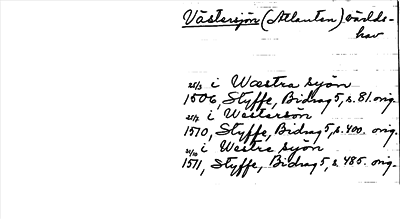 Västersjön (Atlanten) världs-
hav
25/3 i Wæstra syön
1506, Styffe, Bidrag 5, s. 81. orig.
i Westersön
1510, Styffe, Bidrag 5, s. 400. orig.
i Westre syön
1511, Styffe, Bidrag 5, s. 485. orig.